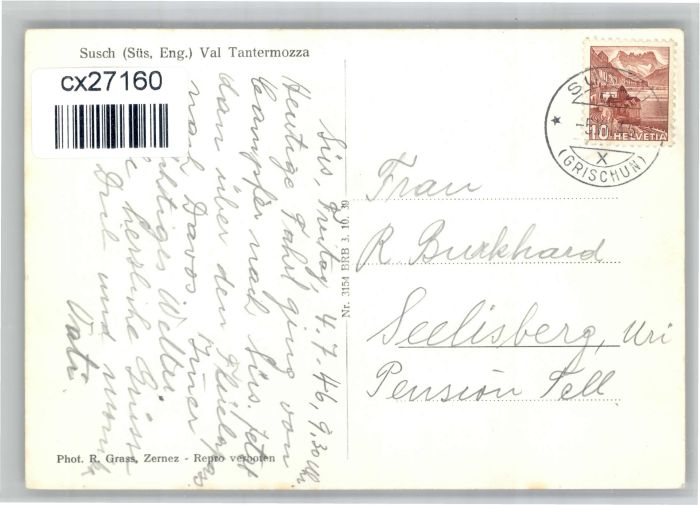 Susch (Süs, Eng.) Val Tantermozza
cx27160
Süs, Freitag, 4.7.46, 9.30 Uhr.
Heutige Fahrt ging von
Campfèr nach Süs. Jetzt
dann über den Flüelapass
nach Davos. Immer
Wetter.
herzliche Grüsse
Dir und
Vati.
Nr. 3154 BRB 3. 10. 39
10 HELVETIA
(GRISCHUN)
Frau
R. Burkhard
Seelisberg, Uri
Pension Tell
Phot. R. Grass, Zernez - Repro verboten